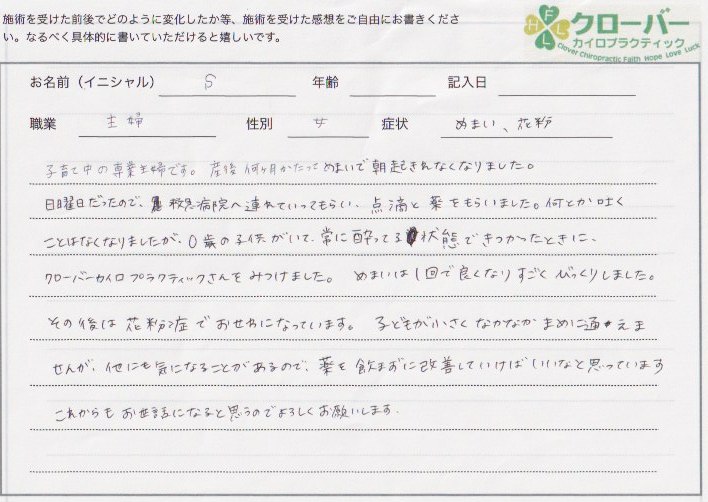 施術を受けた前後でどのように変化したか等、施術を受けた感想をご自由にお書きくださ
い。なるべく具体的に書いていただけると嬉しいです。
FHLL クローバー
カイロプラクティック
Clover Chiropractic Faith Hope Love Luck
お名前（イニシャル） S 年齢 記入日
職業 主婦 性別 女 症状 めまい、花粉
子育て中の専業主婦です。産後何ヶ月かたってめまいで朝起きれなくなりました。
日曜日だったので、救急病院へ連れていってもらい、点滴と薬をもらいました。何とか吐く
ことはなくなりましたが、0歳の子供がいて、常に酔ってる状態できつかったときに、
クローバーカイロプラクティックさんをみつけました。めまいは1回で良くなりすごくびっくりしました。
その後は花粉症でおせわになっています。子どもが小さくなかなかまめに通えま
せんが、他にも気になることがあるので、薬を飲まずに改善していけばいいなと思っています
これからもお世話になると思うのでよろしくお願いします.